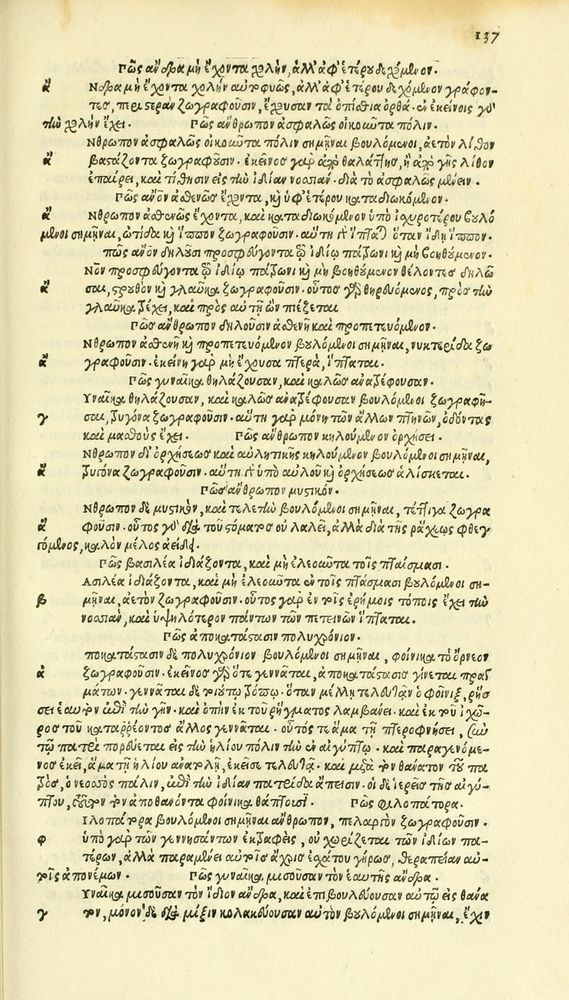 137
Πῶς ἄνδρα μὴ ἔχοντα χολήν, ἀλλ' ἀφ' ἑτέρου δεχόμενον.
ἄ Νδρα μὴ ἔχοντα χολὴν αὐτοφυῶς, ἀλλ' ἀφ' ἑτέρου δεχόμενον γράφον-
τες, περιστερὰν ζωγραφοῦσιν, ἔχουσαν τὰ ὀπίσθια ὀρθά· ἐν ἐκείνοις γὸ
τὴν χολὴν ἔχει. Πῶς ἄνθρωπον ἀσφαλῶς οἰκοῦντα πόλιν.
Νθρωπον ἀσφαλῶς οἰκοῦντα πόλιν σημῆναι βουλόμενοι, ἀετὸν λίθον
ἄ βαστάζοντα ζωγραφοῦσιν. ἐκεῖνος γὰρ ἀπὸ θαλάσσης, ἢ ἀπὸ γῆς λίθον
ἐπαίρει, καὶ τίθησιν εἰς τὴν ἰδίαν νοσσιάν· διὰ τὸ ἀσφαλῶς μένειν.
Πῶς ἄνον ἀσθενῶς ἔχοντα, κὴ ὑφ' ἑτέρου καταδιωκόμενον.
ἄ Νθρωπον ἀσθενῶς ἔχοντα, καὶ καταδιωκόμενον ὑπὸ ἰσχυροτέρου βουλό
μενοι σημῆναι, ὠτίδα κὴ ἵππον ζωγραφοῦσιν. αὕτη γὸ ἵπταται ὅταν ἴδῃ ἵππον.
πῶς ἄνον δηλοῦσι προσφεύγοντα τῷ ἰδίῳ πάτρωνι κὴ μὴ βοηθούμενον.
Νον προσφεύγοντα τῷ ἰδίῳ πάτρωνι κὴ μὴ βοηθούμενον θέλοντες δηλῶ
ἄ σαι, στρουθὸν κὴ γλαῦκα ζωγραφοῦσιν. οὗτος γὸ θηρευόμενος, πρὸς τὴν
γλαῦκα τρέχει, καὶ πρὸς αὐτῇ ὢν πιέζεται
Πῶς ἄνθρωπον δηλοῦσιν ἀσθενῆ καὶ προπετευόμενον.
Νθρωπον ἀσθενῆ κὴ προπετευόμενον βουλόμενοι σημῆναι, νυκτερίδα ζω
ἄ γραφοῦσιν. ἐκείνη γὰρ μὴ ἔχουσα πτερά, ἵπταται.
Πῶς γυναῖκα θηλάζουσαν, καὶ καλῶς ἀνατρέφουσαν.
Υναῖκα θηλάζουσαν, καὶ καλῶς ἀνατρέφουσαν βουλόμενοι ζωγραφῆ-
γ σαι, τρυγόνα ζωγραφοῦσιν. αὕτη γὰρ μόνη τῶν ἄλλων πτηνῶν, ὀδόντας
καὶ μασθοὺς ἔχει. Πῶς ἄνθρωπον κηλούμενον ὀρχήσει.
Νθρωπον δι' ὀρχήσεως καὶ αὐλητικῆς κηλούμενον βουλόμενοι σημῆναι,
ἄ τρυγόνα ζωγραφοῦσιν. αὕτη γὸ ὑπὸ αὐλοῦ κὴ ὀρχήσεως ἁλίσκεται.
Πῶς ἄνθρωπον μυστικόν.
Νθρωπον δὲ μυστικὸν, καὶ τελετὴν βουλόμενοι σημῆναι, τέττιγα ζωγρα
ἄ φοῦσιν. οὗτος γὸ διὰ τοῦ στόματος οὐ λαλεῖ, ἀλλὰ διὰ τῆς ῥάχεως φθεγ
γόμενος, καλὸν μέλος ἀείδει.
Πῶς βασιλέα ἰδιάζοντα, καὶ μὴ ἐλεοῦντα τοῖς πταίσμασι.
Ασιλέα ἰδιάζοντα, καὶ μὴ ἐλεοῦντα ἐν τοῖς πταίσμασι βουλόμενοι ση-
β μῆναι, ἀετὸν ζωγραφοῦσιν. οὗτος γὰρ ἐν τοῖς ἐρήμοις τόποις ἔχει τὴν
νοσσιὰν, καὶ ὑψηλότερον πάντων τῶν πετεινῶν ἵπταται.
Πῶς ἀποκατάστασιν πολυχρόνιον.
ποκατάστασιν δὲ πολυχρόνιον βουλόμενοι σημῆναι, φοίνικα τὸ ὄρνεον
ἄ ζωγραφοῦσιν. ἐκεῖνος γὸ ὅτε γεννᾶται, ἀποκατάστασις γίνεται πραγ
μάτων. γεννᾶται δὲ τοιούτῳ τρόπῳ. ὅταν μέλλῃ τελευτᾶν ὁ φοῖνιξ, ῥήσ
σει ἑαυτὸν ἐπὶ τὴν γῆν. καὶ ὀπὴν ἐκ τοῦ ῥήγματος λαμβάνει. καὶ ἐκ τοῦ ἰχῶ-
ρος τοῦ καταῤῥέοντος ἄλλος γεννᾶται. οὗτός τε ἅμα τῇ πτεροφυῆσαι, σὺν
τῷ πατρὶ πορεύεται εἰς τὴν ἡλίου πόλιν τὴν ἐν αἰγύπτῳ. καὶ παραγενόμε-
νος ἐκεῖ, ἅμα τῇ ἡλίου ἀνατολῇ, ἐκεῖσε τελευτᾷ. καὶ μετὰ τὸν θάνατον τοῦ πα
τρὸς, ὁ νεοσσὸς πάλιν, ἐπὶ τὴν ἰδίαν πατρίδα ἄπεισιν. οἱ δὲ ἱερεῖς τῆς αἰγύ-
πτου, τοῦτον τὸν ἀποθανόντα φοίνικα θάπτουσι. Πῶς φιλοπάτορα.
Ιλοπάτορα βουλόμενοι σημῆναι ἄνθρωπον, πελαργὸν ζωγραφοῦσιν.
φ ὑπὸ γὰρ τῶν γεννησάντων ἐκτραφεὶς, οὐ χωρίζεται τῶν ἰδίων πα-
τέρων, ἀλλὰ παραμένει αὐτοῖς ἄχρις ἐσχάτου γήρως, θεραπείαν αὐ-
τοῖς ἀπονέμων. Πῶς γυναῖκα μισοῦσαν τὸν ἑαυτῆς ἄνδρα.
Υναῖκα μισοῦσαν τὸν ἴδιον ἄνδρα, καὶ ἐπιβουλεύουσαν αὐτῷ εἰς θάνα
γ τον, μόνον δὲ διὰ μίξιν κολακεύουσαν αὐτὸν βουλόμενοι σημῆναι, ἔχιν